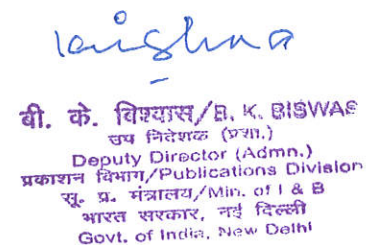 बी. के. विश्वास/B. K. BISWAS
उप निदेशक (प्रशा.)
Deputy Director (Admn.)
प्रकाशन विभाग/Publications Division
सू. प्र. मंत्रालय/Min. of I & B
भारत सरकार, नई दिल्ली
Govt. of India, New Delhi